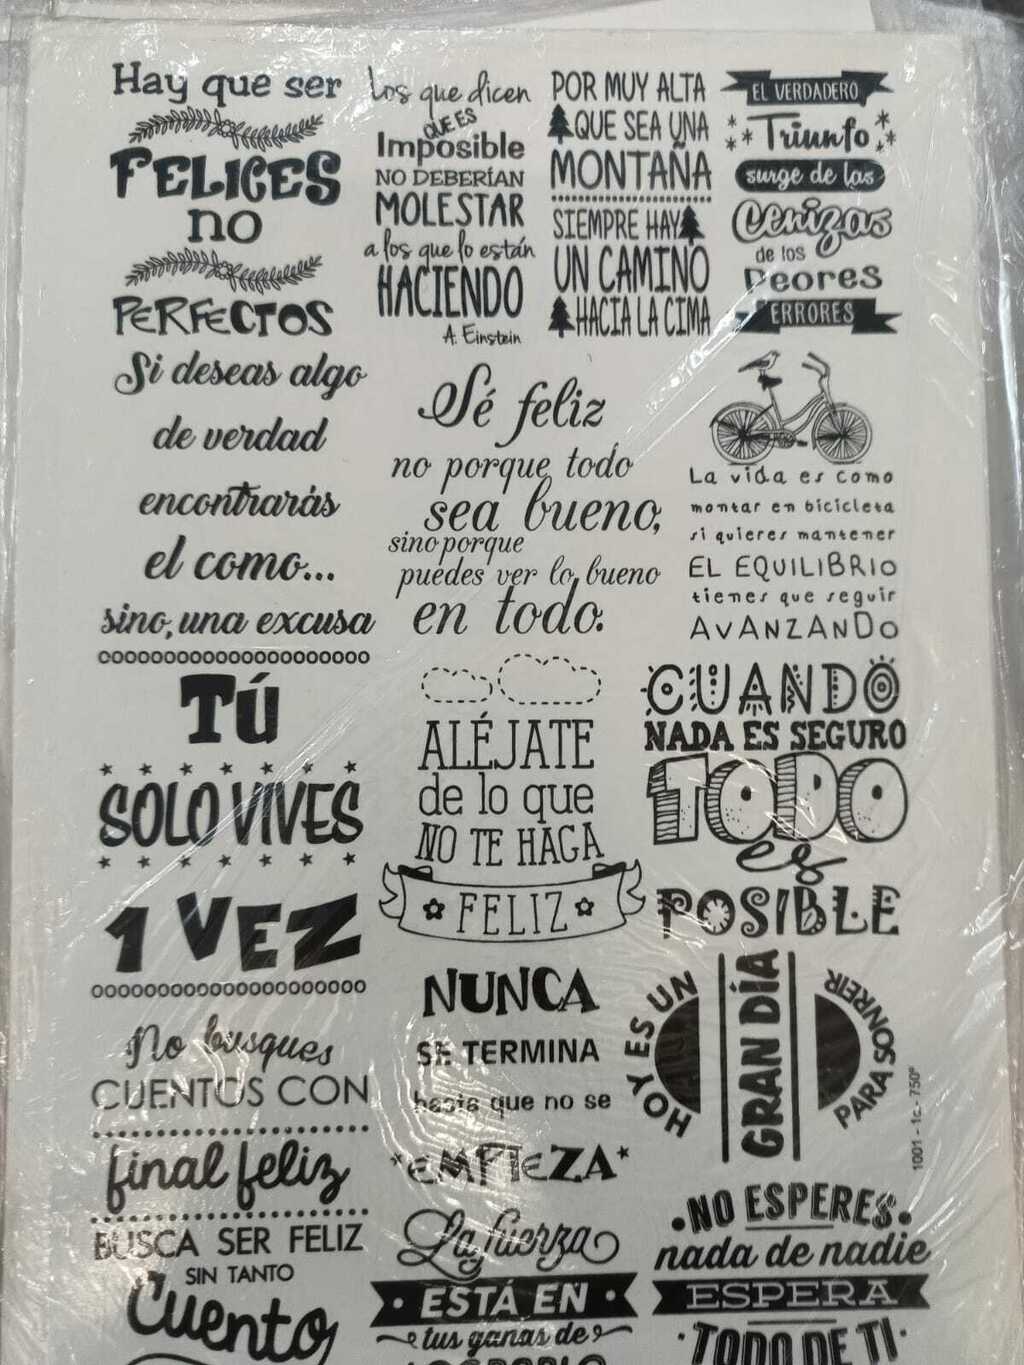 Hay que ser
FELICES
no
PERFECTOS
Los que dicen
QUE ES
Imposible
NO DEBERÍAN
MOLESTAR
a los que lo están
HACIENDO
A. Einstein
POR MUY ALTA
QUE SEA UNA
MONTAÑA
SIEMPRE HAY
UN CAMINO
HACIA LA CIMA
EL VERDADERO
Triunfo
surge de las
Cenizas
de los
Peores
ERRORES
Si deseas algo
de verdad
encontrarás
el como...
sino, una excusa
Sé feliz
no porque todo
sea bueno,
sino porque
puedes ver lo bueno
en todo.
La vida es como
montar en bicicleta
si quieres mantener
EL EQUILIBRIO
tienes que seguir
AVANZANDO
oooooooooooooooooooooo
TÚ
SOLO VIVES
1 VEZ
oooooooooooooooooooooo
ALÉJATE
de lo que
NO TE HAGA
FELIZ
CUANDO
NADA ES SEGURO
TODO
es
POSIBLE
No busques
CUENTOS CON
final feliz
BUSCA SER FELIZ
SIN TANTO
Cuento
NUNCA
SE TERMINA
hasta que no se
EMPIEZA
HOY ES UN
GRAN DÍA
PARA SONREIR
1001 - 1c.- 750º
La fuerza
ESTÁ EN
tus ganas de
LOGRARLO
NO ESPERES
nada de nadie
ESPERA
TODO DE TI